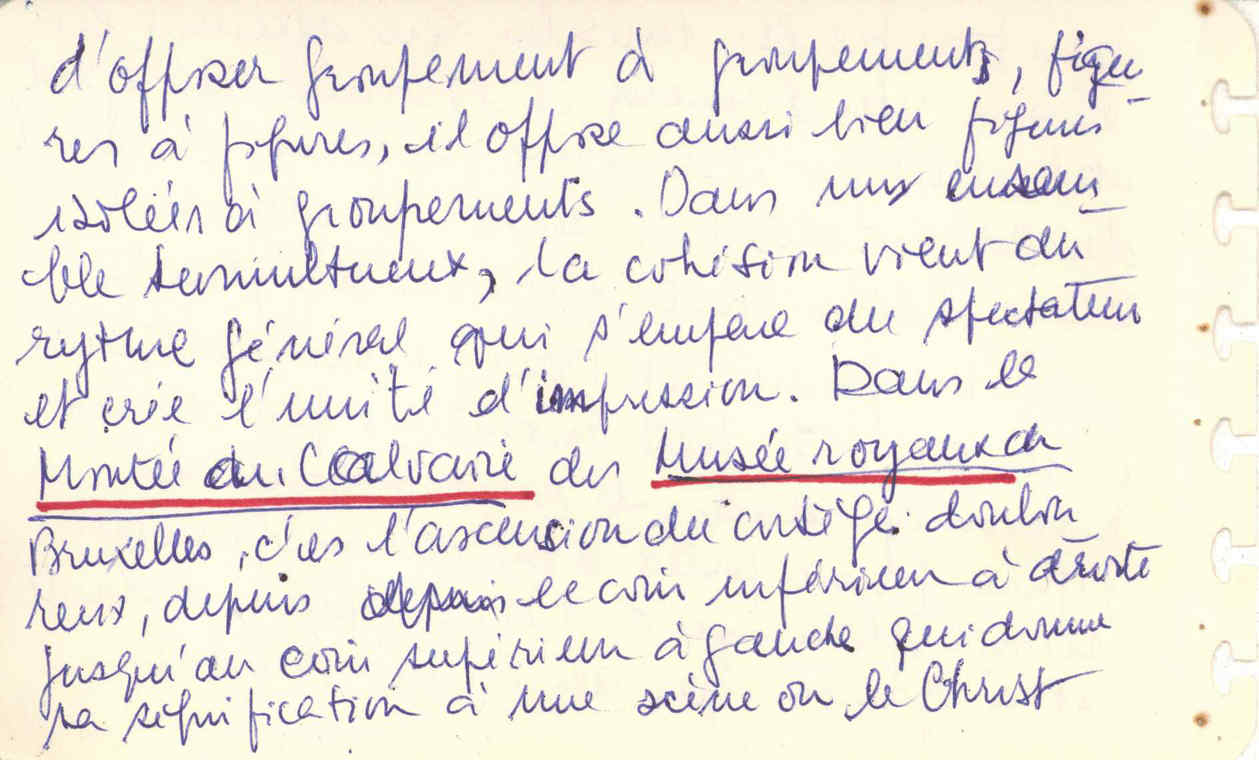 d'opposer groupement à groupements, figu-
res à figures, il oppose aussi bien figures
isolées à groupements. Dans un ensem-
ble tumultueux, la cohésion vient du
rytme général qui s'empare du spectateur
et crée l'unité d'impression. Dans le
Montée du Calvaire des Musée royaux de
Bruxelles, c'es l'ascension du cortège doulou
reux, depuis le coin inférieur à droite
jusqu'au coin supérieur à gauche qui donne
sa signification à une scène ou le Christ